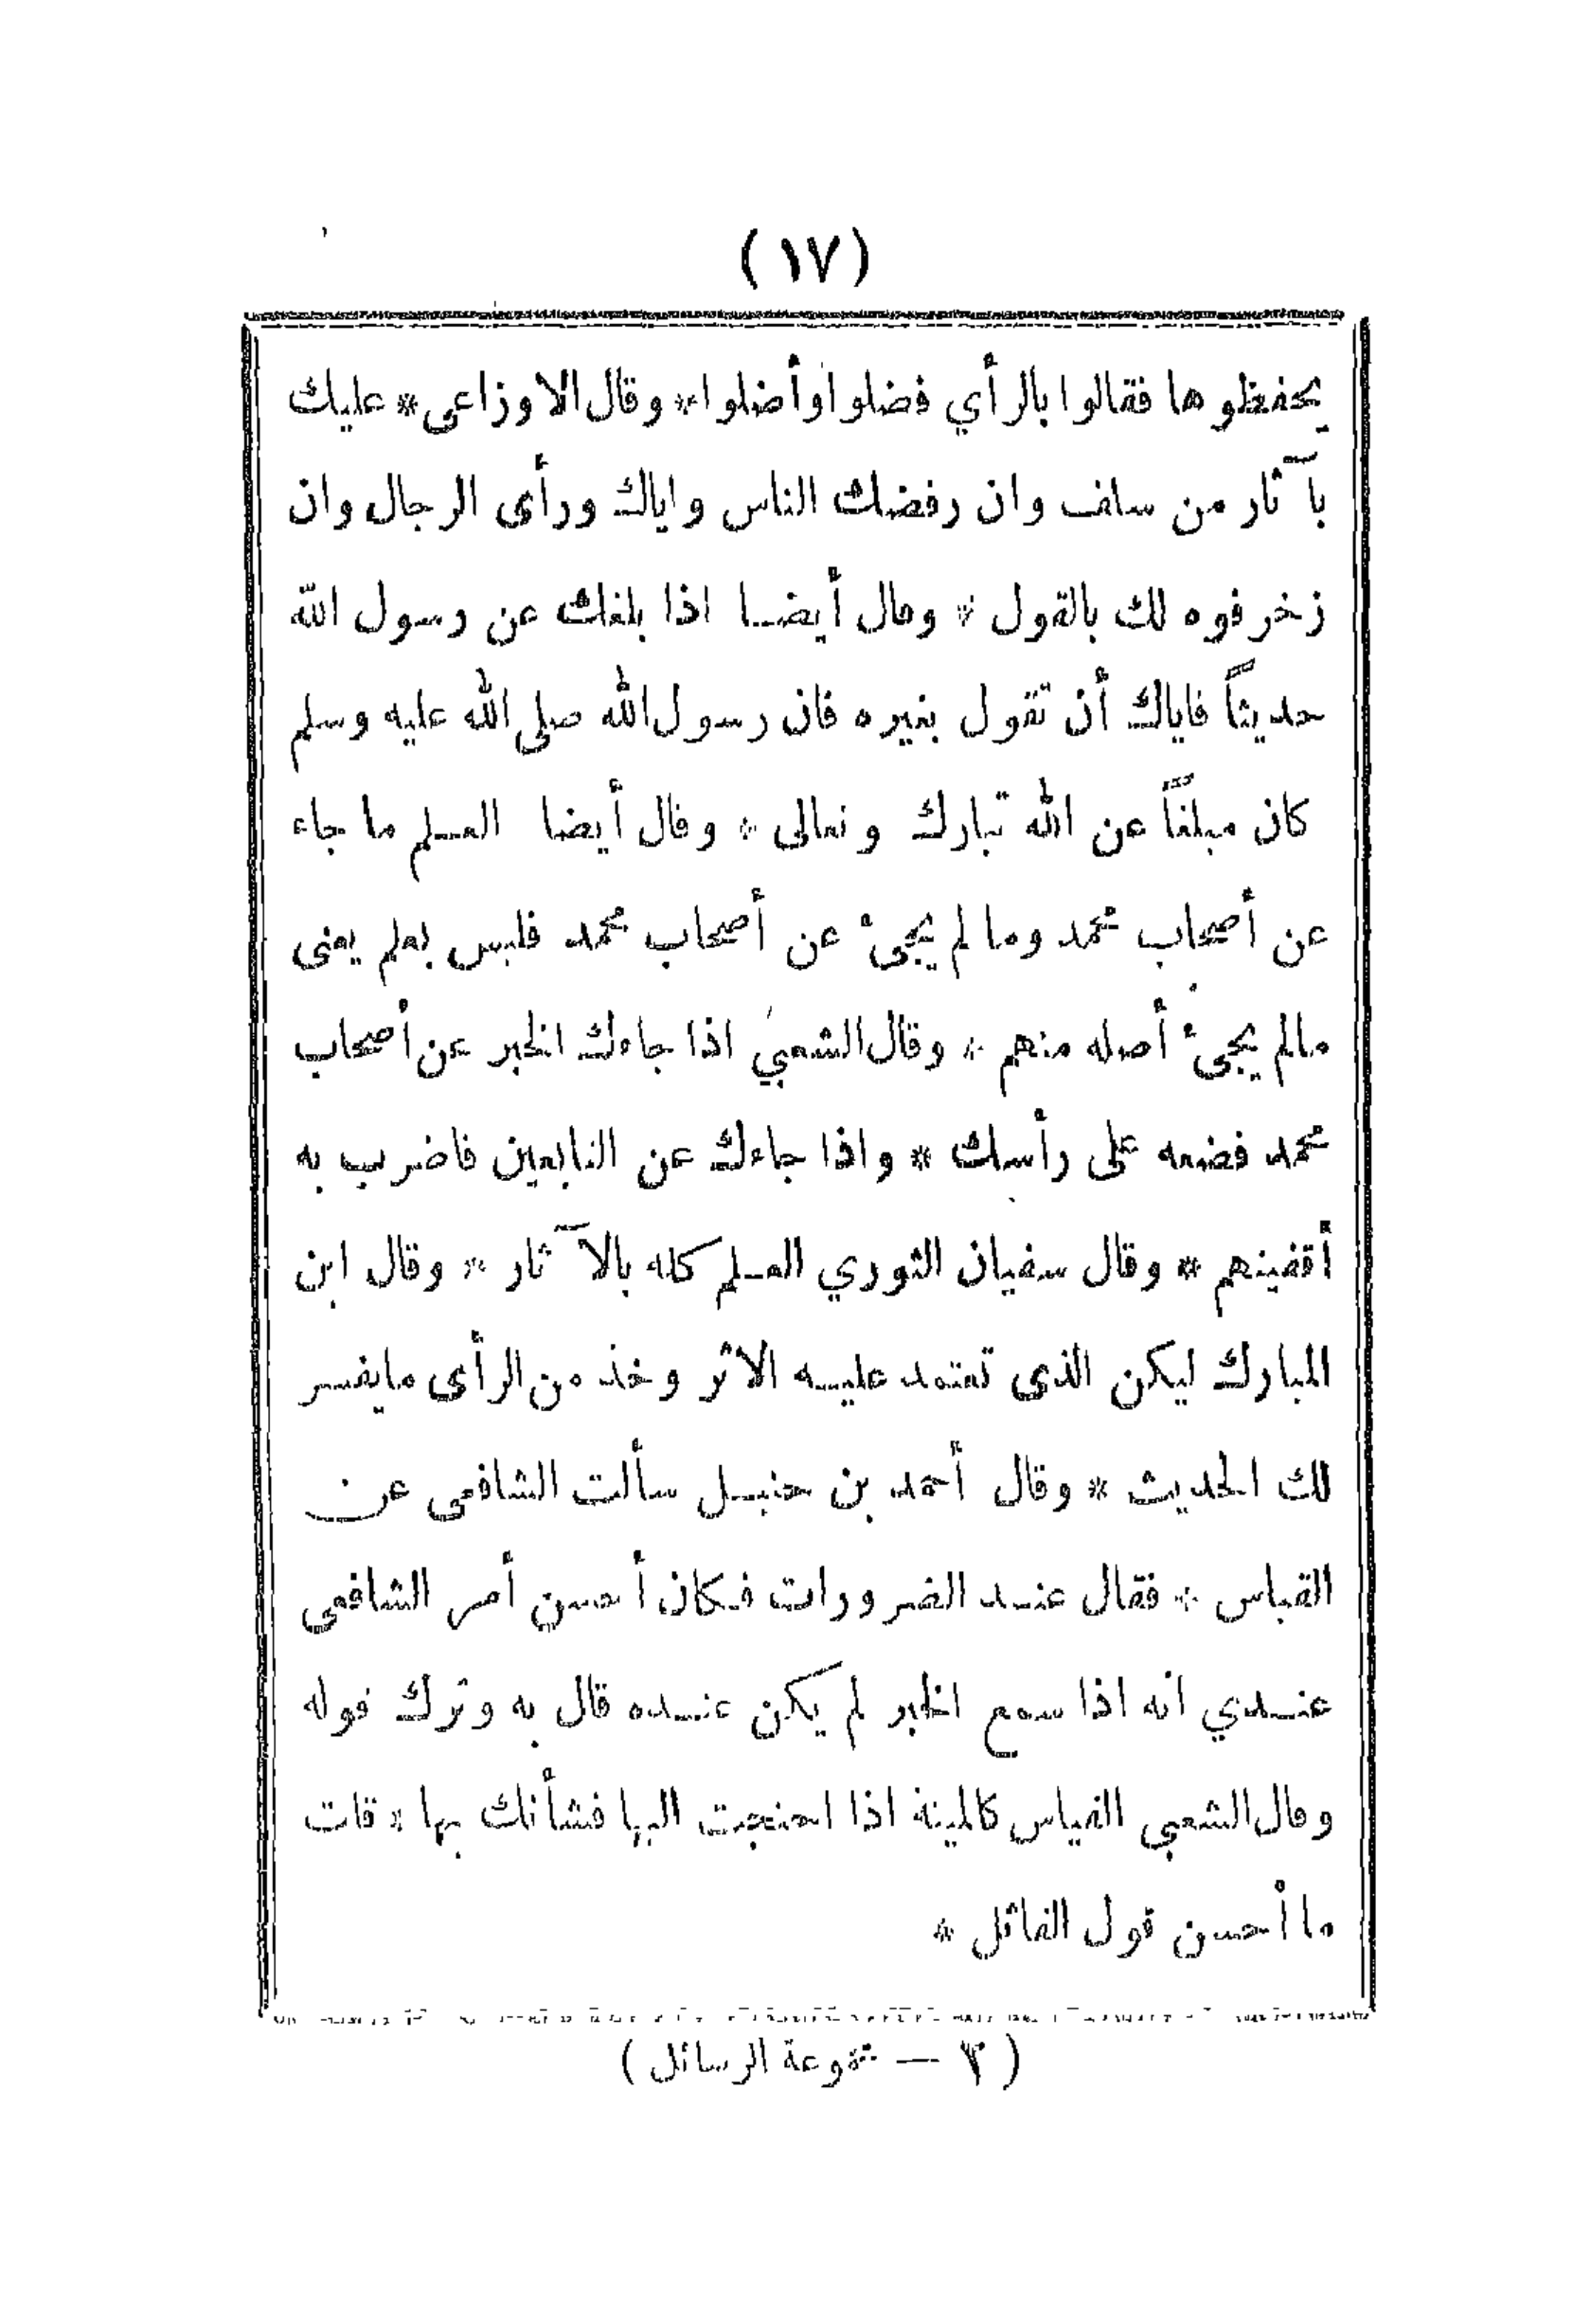 (١٧)
يحفظوها فقالوا بالرأي فضلوا وأضلوا * وقال الاوزاعى * عليك
بآثار من سلف وان رفضك الناس واياك ورأى الرجال وان
زخرفوه لك بالقول * وقال أيضا اذا بلغك عن رسول الله
حديثاً فاياك أن تقول بغيره فان رسول الله صلى الله عليه وسلم
كان مبلغاً عن الله تبارك وتعالى * وقال أيضا العلم ما جاء
عن أصحاب محمد وما لم يجىء عن أصحاب محمد فليس بعلم يعنى
مالم يجىء أصله منهم * وقال الشعبي اذا جاءك الخبر عن أصحاب
محمد فضعه على رأسك * واذا جاءك عن التابعين فاضرب به
أقفيتهم * وقال سفيان الثوري العلم كله بالآثار * وقال ابن
المبارك ليكن الذى تعتمد عليه الاثر وخذ من الرأى مايفسر
لك الحديث * وقال أحمد بن حنبل سألت الشافعى عن
القياس * فقال عند الضرورات فكان أحسن أمر الشافعى
عندي انه اذا سمع الخبر لم يكن عنده قال به وترك قوله
وقال الشعبي القياس كالميتة اذا احتجت اليها فشأنك بها * قلت
ما أحسن قول القائل *
(٣ — مجموعة الرسائل)